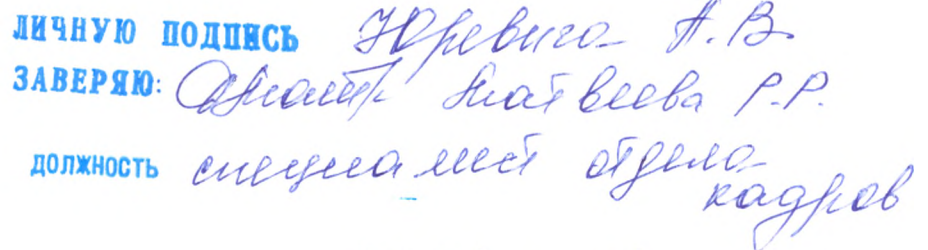 ЛИЧНУЮ ПОДПИСЬ Юревича А.В.
ЗАВЕРЯЮ: Матвеева Р.Р.
ДОЛЖНОСТЬ специалист отдела
кадров